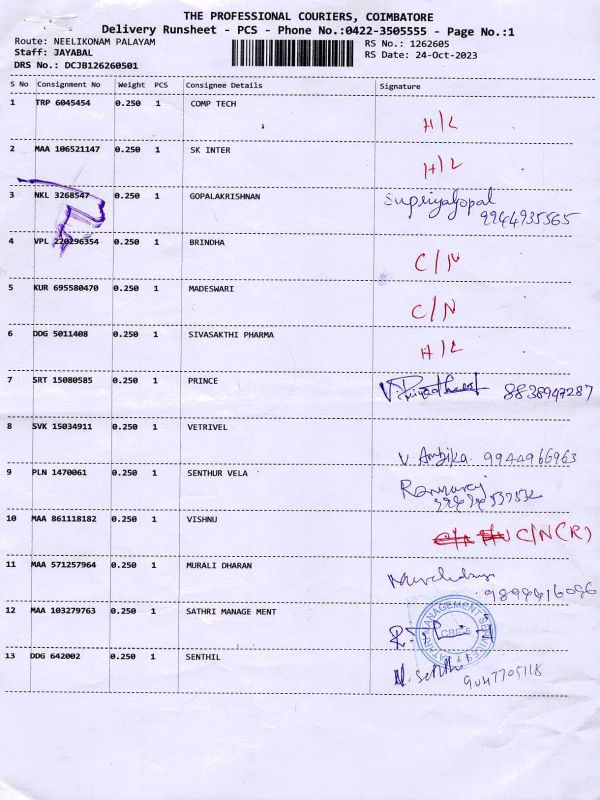 THE PROFESSIONAL COURIERS, COIMBATORE
Delivery Runsheet - PCS - Phone No.:0422-3505555 - Page No.:1
Route: NEELIKONAM PALAYAM RS No.: 1262605
Staff: JAYABAL RS Date: 24-Oct-2023
DRS No.: DCJB126260501
S No Consignment No Weight PCS Consignee Details Signature
1 TRP 6045454 0.250 1 COMP TECH
H/L
2 MAA 106521147 0.250 1 SK INTER
H/L
3 NKL 3268547 0.250 1 GOPALAKRISHNAN Supriyalgopal
9944935565
4 VPL 220296354 0.250 1 BRINDHA
C/N
5 KUR 695580470 0.250 1 MADESWARI
C/N
6 DDG 5011408 0.250 1 SIVASAKTHI PHARMA
H/L
7 SRT 15080585 0.250 1 PRINCE 8838947287
8 SVK 15034911 0.250 1 VETRIVEL
V. Ambika. 9944966963
9 PLN 1470061 0.250 1 SENTHUR VELA
10 MAA 861118182 0.250 1 VISHNU
C/N(R)
11 MAA 571257964 0.250 1 MURALI DHARAN
9894416096
12 MAA 103279763 0.250 1 SATHRI MANAGE MENT
13 DDG 642002 0.250 1 SENTHIL
N. Senthil 9047705118